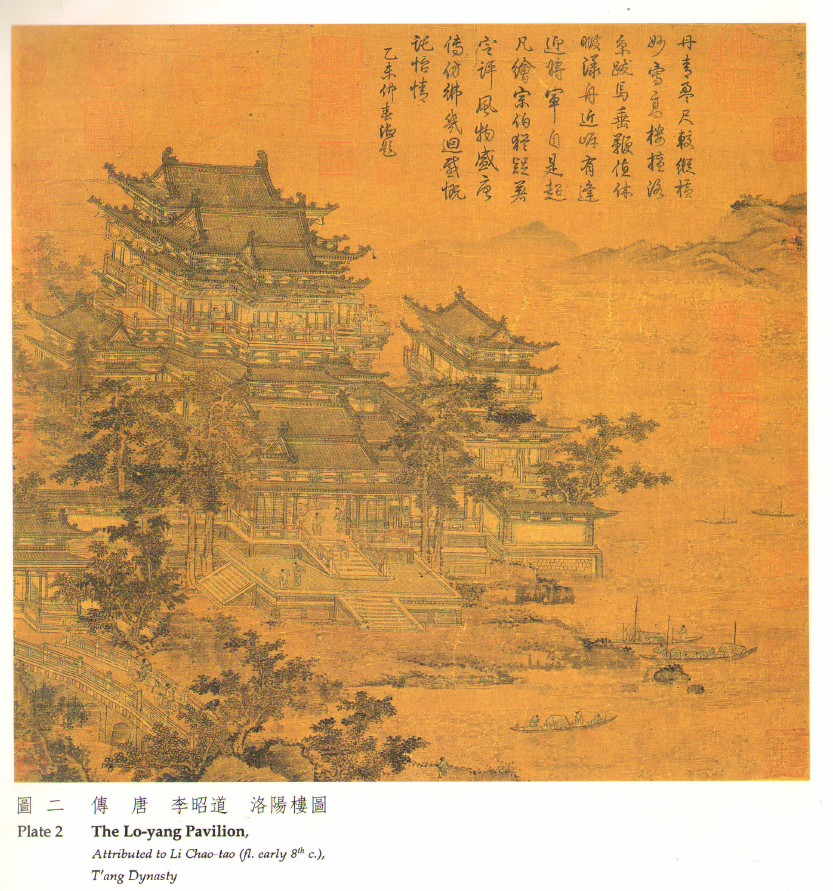 丹青尺較縱橫
妙寫高樓洛
京跋馬垂鞭值休
暇漾舟近岸有逢
迎將軍自是超
凡繪宗伯猶疑著
定評風物盛唐
傳仿彿幾迴感慨
託怡情
乙未仲春御題
圖二 傳 唐 李昭道 洛陽樓圖
Plate 2 The Lo-yang Pavilion,
Attributed to Li Chao-tao (fl. early 8th c.),
T'ang Dynasty